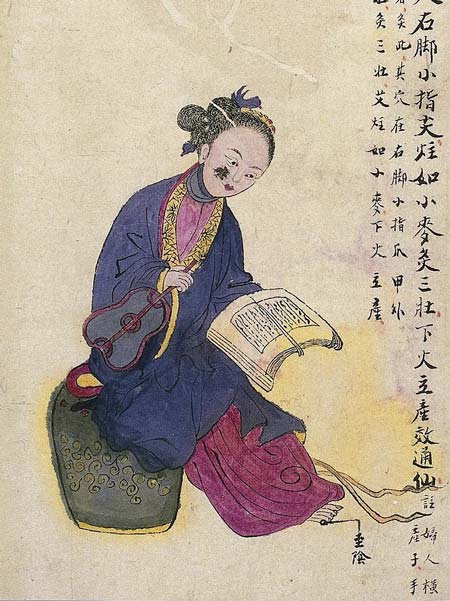 右脚小指艾炷如小麥灸三壮下火立產效通仙
註婦人橫
產子手
灸此其穴在右脚小指爪甲外
灸三壮艾炷如小麥下火立產
至陰